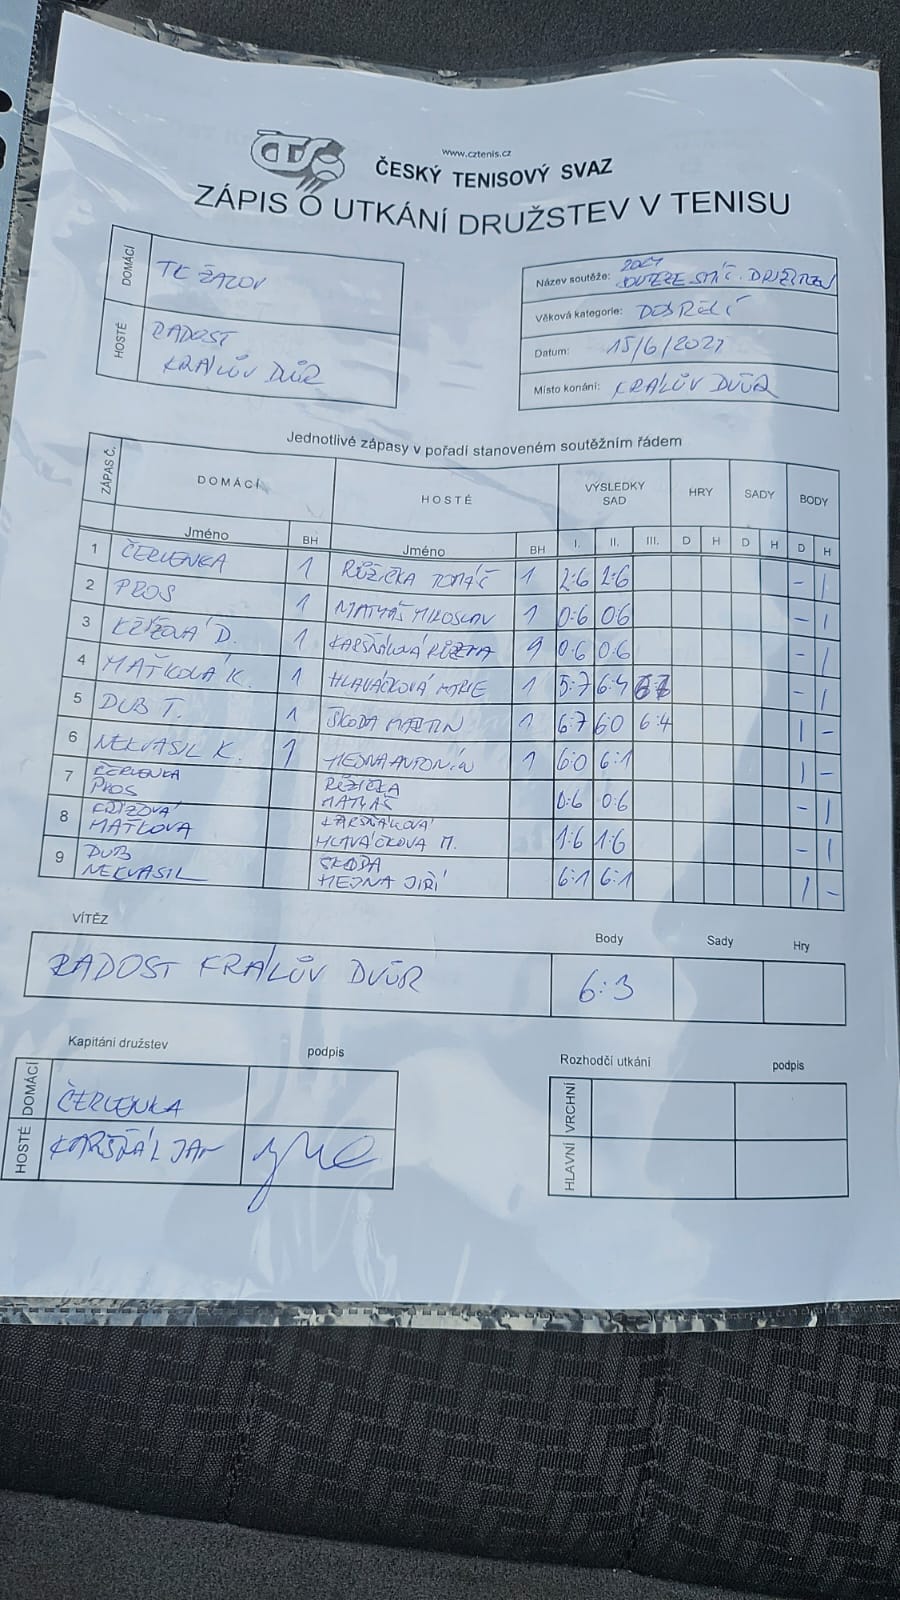 www.cztenis.cz
ČESKÝ TENISOVÝ SVAZ
ZÁPIS O UTKÁNÍ DRUŽSTEV V TENISU
DOMÁCÍ TK ŽALOV
HOSTÉ RADOST
KRÁLŮV DVŮR
Název soutěže: 2021
SOUTĚŽE SMÍŠ. DRUŽSTEV
Věková kategorie: DOSPĚLÍ
Datum: 15/6/2021
Místo konání: KRÁLŮV DVŮR
Jednotlivé zápasy v pořadí stanoveném soutěžním řádem
ZÁPAS Č. DOMÁCÍ HOSTÉ VÝSLEDKY SAD HRY SADY BODY
Jméno BH Jméno BH I. II. III. D H D H D H
1 ČERVENKA 1 RŮŽIČKA TOMÁŠ 1 2:6 1:6 - 1
2 PROS 1 MATYÁŠ MIROSLAV 1 0:6 0:6 - 1
3 KŘÍŽOVÁ D. 1 KARŠŇÁKOVÁ 9 0:6 0:6 - 1
4 MAŤKOVÁ K. 1 HLAVÁČKOVÁ 1 5:7 6:4 - 1
5 DUB T. 1 ŠKODA MARTIN 1 6:7 6:0 6:4 1 -
6 NEKVASIL K. 1 HEJNA ANTONÍN 1 6:0 6:1 1 -
7 ČERVENKA RŮŽIČKA
PROS MATYÁŠ 0:6 0:6 - 1
8 KŘÍŽOVÁ KARŠŇÁKOVÁ
MAŤKOVA HLAVÁČKOVA M. 1:6 1:6 - 1
9 DUB ŠKODA
NEKVASIL HEJNA JIŘÍ 6:1 6:1 1 -
VÍTĚZ Body Sady Hry
RADOST KRÁLŮV DVŮR 6:3
Kapitáni družstev podpis
DOMÁCÍ ČERVENKA
HOSTÉ KARŠŇÁK JAN
Rozhodčí utkání podpis
VRCHNÍ
HLAVNÍ